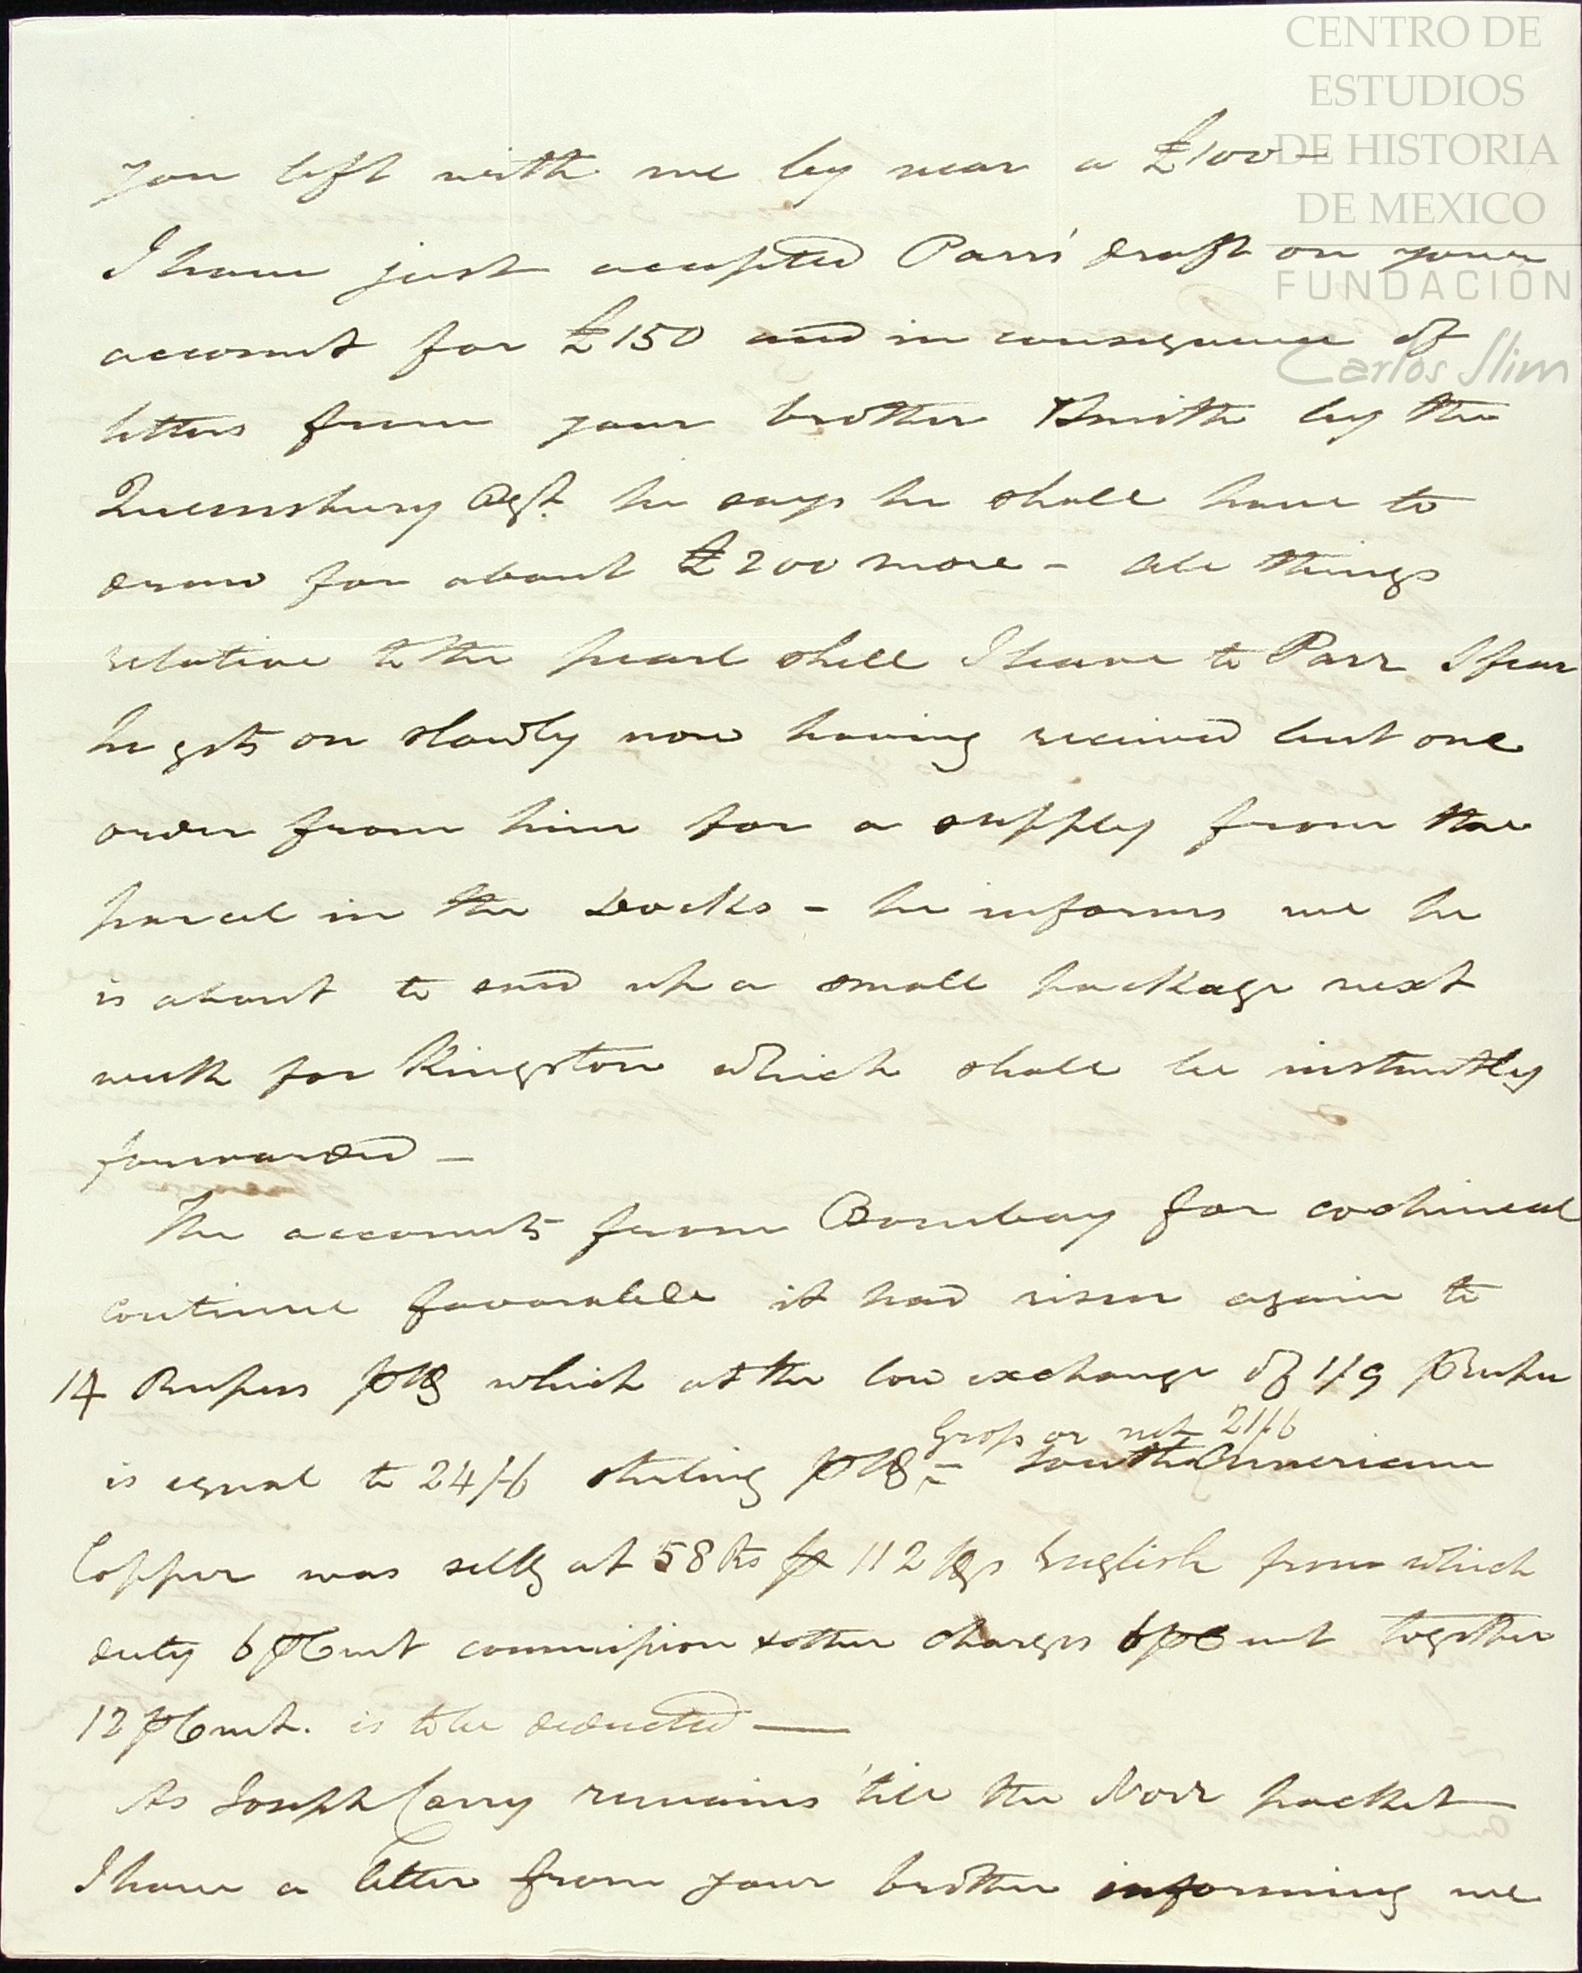 CENTRO DE
ESTUDIOS
DE HISTORIA
DE MEXICO
FUNDACIÓN
Carlos Slim
you left with me by near a £100 –
I have just accepted Parrs' draft on your
account for £150 and in consequence of
letters from your brother Smith by the
Queensbury Agst. he says he shall have to
draw for about £200 more – All things
relative to the pearl shell I leave to Parr I fear
he gets on slowly now having received but one
order from him for a supply from the
parcel in the Docks – he informs me he
is about to send up a small package next
week for Kingston which shall be instantly
forwarded –
The accounts from Bombay for cochineal
continue favorable it had risen again to
14 Rupees p lb which at the low exchange of 1/9 p Rupee
Gross or net 21/6
is equal to 24/6 sterling p lb – South American
Copper was sellg at 58 Rs p 112 lbs English from which
duty 6 p Cent commission & other charges 6 p Cent together
12 p Cent. is to be deducted —
As Joseph Carry remains 'till the Novr packet
I have a letter from your brother informing me